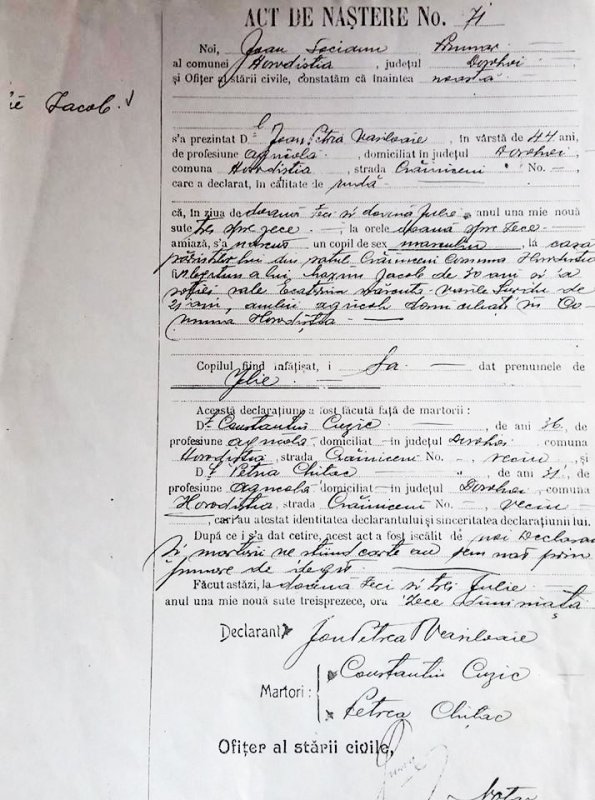 ACT DE NAȘTERE No. 71
Noi, Ioan Primar
al comunei Horodistia, județul Dorohoi
și Ofițer al stării civile, constatăm că înaintea noastră
Iacob
s'a prezintat D. Ion Petrea Vasiloaie, în vârstă de 44 ani,
de profesiune agricola, domiciliat în județul Dorohoi
comuna Horodistia, strada Crăiniceni No. —
care a declarat, în calitate de rudă
că, în ziua de douăzeci si doua Julie, anul una mie nouă
sute trei spre zece, la orele doaua spre zece
amiază, s'a născut un copil de sex masculin, la casa
părinților lui din satul Crăiniceni Comuna Horodistia
Jacob de 30 ani si a
soției sale Ecaterina născută Vasile de
21 ani, agricoli domiciliati in Co-
muna Horodiștia
Copilul fiind înfățișat, i s'a dat prenumele de
Ilie
Această declarațiune a fost făcută față de martorii :
D. Constantin Cuzic, de ani 36, de
profesiune agricola domiciliat în județul Dorohoi, comuna
Horodistia, strada Crăiniceni No. — vecin, și
D. Petrea Chitac, de ani 31, de
profesiune agricola domiciliat în județul Dorohoi, comuna
Horodistia, strada Crăiniceni No. —, vecin
, cari au atestat identitatea declarantului și sinceritatea declarațiunii lui.
După ce i s'a dat cetire, acest act a fost iscălit de noi Declaran
si martorii ne stiind carte au semnat prin
punere de deget
Făcut astăzi, la douazeci si trei Julie
anul una mie nouă sute treisprezece, ora zece dimineața
Declarant Ion Petrea Vasiloaie
Constantin Cuzic
Martori :
Petrea Chitac
Ofițer al stării civile,